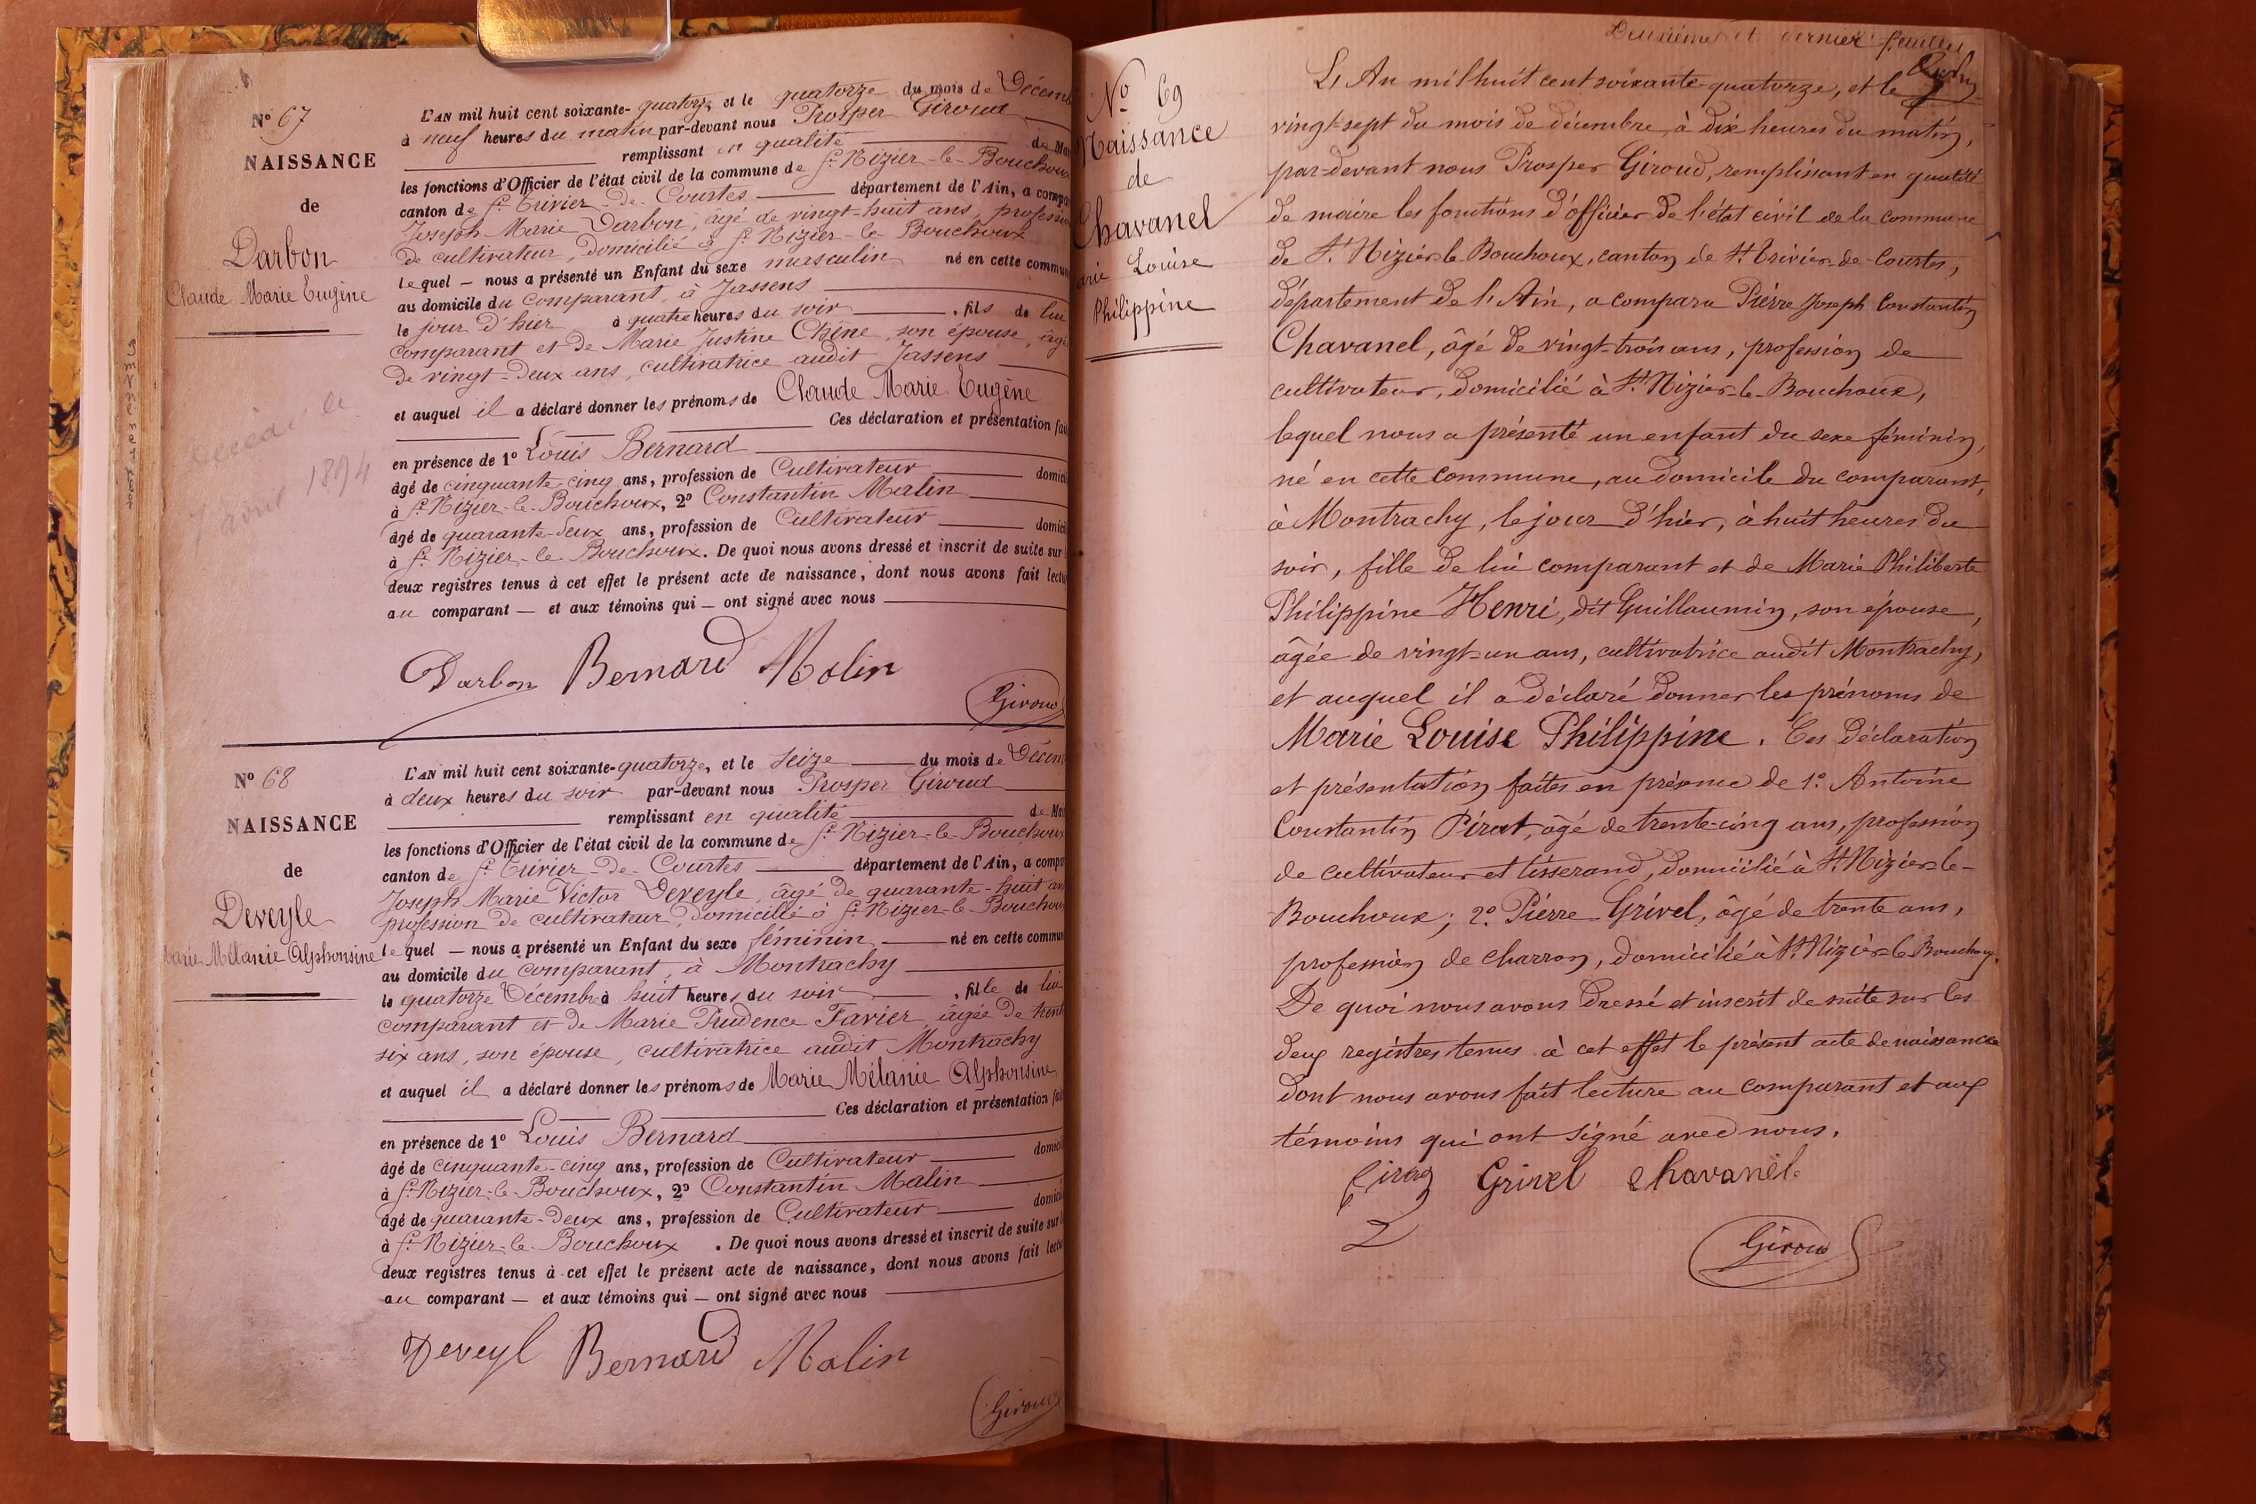 N° 67
NAISSANCE
de
Darbon
Claude Marie Eugène
décédé le
1894
L'AN mil huit cent soixante-quatorze, et le quatorze du mois de Décem
à neuf heures du matin par-devant nous Prosper Giroud
remplissant en qualité de Mai
les fonctions d'Officier de l'état civil de la commune de St Nizier-le-Bouchoux
canton de St Trivier-de-Courtes département de l'Ain, a compa
Joseph Marie Darbon, âgé de vingt-huit ans, profession
de cultivateur, domicilié à St Nizier-le-Bouchoux
lequel — nous a présenté un Enfant du sexe masculin né en cette commun
au domicile du comparant, à Jassens
le jour d'hier à quatre heures du soir, fils de lui
comparant et de Marie Justine Chêne, son épouse, âgé
de vingt-deux ans, cultivatrice audit Jassens
et auquel il a déclaré donner les prénoms de Claude Marie Eugène
Ces déclaration et présentation fai
en présence de 1° Louis Bernard
âgé de cinquante-cinq ans, profession de Cultivateur domici
à St Nizier-le-Bouchoux, 2° Constantin Malin
âgé de quarante-deux ans, profession de Cultivateur domici
à St Nizier-le-Bouchoux. De quoi nous avons dressé et inscrit de suite sur l
deux registres tenus à cet effet le présent acte de naissance, dont nous avons fait lectu
au comparant — et aux témoins qui — ont signé avec nous
Darbon Bernard Malin
Giroud
N° 68
NAISSANCE
de
Deveyle
Marie Mélanie Alphonsine
L'AN mil huit cent soixante-quatorze, et le seize du mois de Décem
à deux heures du soir par-devant nous Prosper Giroud
remplissant en qualité de Mai
les fonctions d'Officier de l'état civil de la commune de St Nizier-le-Bouchoux
canton de St Trivier-de-Courtes département de l'Ain, a compa
Joseph Marie Victor Deveyle, âgé de quarante-huit an
profession de cultivateur, domicilié à St Nizier-le-Bouchoux
lequel — nous a présenté un Enfant du sexe féminin né en cette commun
au domicile du comparant, à Montrachy
le quatorze Décembre à huit heures du soir, fille de lui
comparant et de Marie Prudence Favier, âgée de trent
six ans, son épouse, cultivatrice audit Montrachy
et auquel il a déclaré donner les prénoms de Marie Mélanie Alphonsine
Ces déclaration et présentation fai
en présence de 1° Louis Bernard
âgé de cinquante-cinq ans, profession de Cultivateur domici
à St Nizier-le-Bouchoux, 2° Constantin Malin
âgé de quarante-deux ans, profession de Cultivateur domici
à St Nizier-le-Bouchoux. De quoi nous avons dressé et inscrit de suite sur l
deux registres tenus à cet effet le présent acte de naissance, dont nous avons fait lectu
au comparant — et aux témoins qui — ont signé avec nous
Deveyl Bernard Malin
Giroud
Deuxième et dernier feuillet
N° 69
Naissance
de
Chavanel
arie Louise
Philippine
L'An mil huit cent soixante-quatorze, et le
vingt-sept du mois de décembre, à dix heures du matin,
par-devant nous Prosper Giroud, remplissant en qualité
de maire les fonctions d'officier de l'état civil de la commune
de St Nizier-le-Bouchoux, canton de St Trivier-de-Courtes,
département de l'Ain, a comparu Pierre Joseph Constantin
Chavanel, âgé de vingt-trois ans, profession de
cultivateur, domicilié à St Nizier-le-Bouchoux,
lequel nous a présenté un enfant du sexe féminin,
né en cette commune, au domicile du comparant,
à Montrachy, le jour d'hier, à huit heures du
soir, fille de lui comparant et de Marie Philiberte
Philippine Henri, dit Guillaumin, son épouse,
âgée de vingt-un ans, cultivatrice audit Montrachy,
et auquel il a déclaré donner les prénoms de
Marie Louise Philippine. Ces déclaration
et présentation faites en présence de 1° Antoine
Constantin Pirat, âgé de trente-cinq ans, profession
de cultivateur et tisserand, domicilié à St Nizier-le-
Bouchoux; 2° Pierre Grivel, âgé de trente ans,
profession de charron, domicilié à St Nizier-le-Bouchoux.
De quoi nous avons dressé et inscrit de suite sur les
deux registres tenus à cet effet le présent acte de naissance
dont nous avons fait lecture au comparant et aux
témoins qui ont signé avec nous.
Grivel Chavanel
Giroud